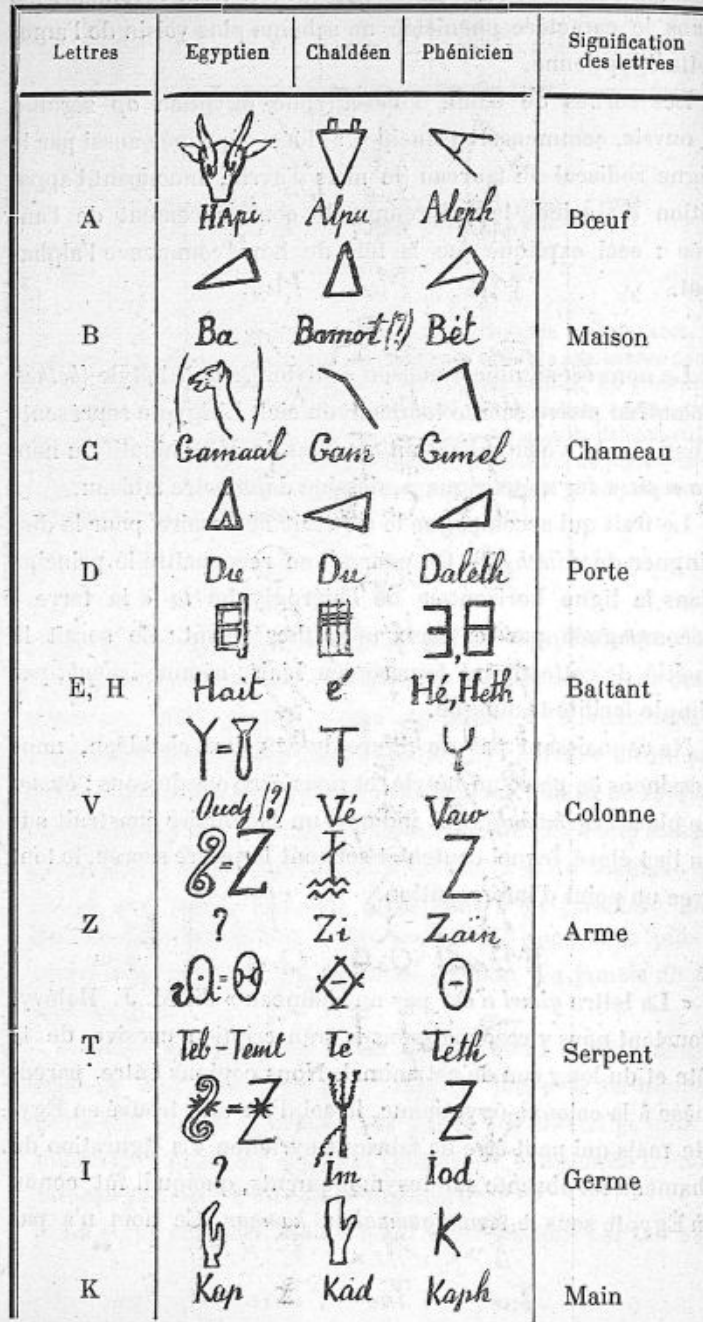 Lettres Egyptien Chaldéen Phénicien Signification des lettres
A HApi Alpu Aleph Bœuf
B Ba Bamot (?) Bét Maison
C Gamaāl Gam Gimel Chameau
D Du Du Daleth Porte
E, H Hait e Hé, Heth Battant
V Oudj (?) Vé Vaw Colonne
Z ? Zi Zain Arme
T Teb-Temt Te Téth Serpent
I ? Im Iod Germe
K Kap Kàd Kaph Main